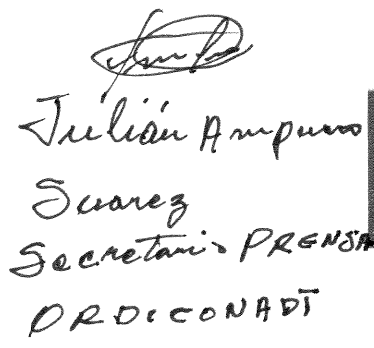 Julián Ampuero
Suarez
Secretario PRENSA
ORDICONADT